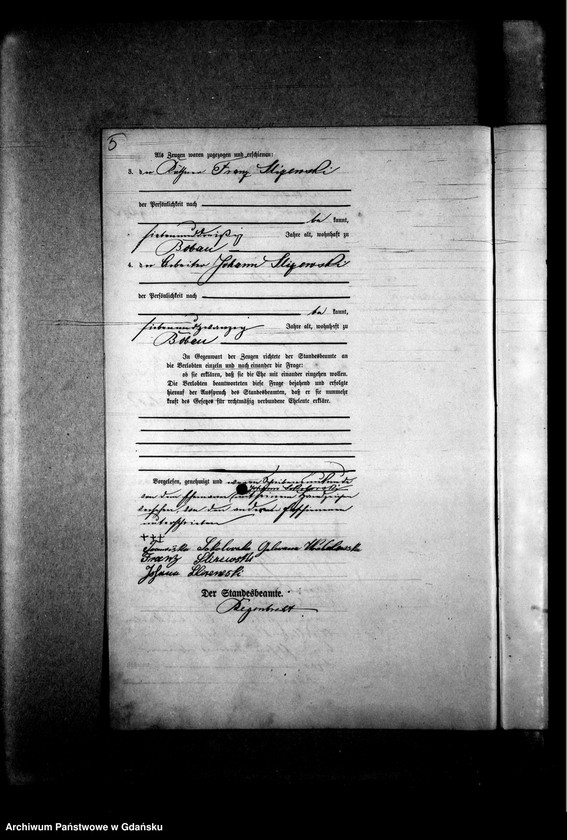 5
Als Zeugen waren zugezogen und erschienen:
3. der Käthner Franz Sligewski
der Persönlichkeit nach
be kannt,
siebenunddreißig Jahre alt, wohnhaft zu
Bobau
4. der Arbeiter Johann Sligewski
der Persönlichkeit nach
be kannt,
siebenundzwanzig Jahre alt, wohnhaft zu
Bobau
In Gegenwart der Zeugen richtete der Standesbeamte an
die Verlobten einzeln und nach einander die Frage:
ob sie erklären, daß sie die Ehe mit einander eingehen wollen.
Die Verlobten beantworteten diese Frage bejahend und erfolgte
hierauf der Ausspruch des Standesbeamten, daß er sie nunmehr
kraft des Gesetzes für rechtmäßig verbundene Eheleute erkläre.
Vorgelesen, genehmigt und wegen Schreibensunkunde
von dem Ehemann mit seinem Handzeichen
versehen, von den anderen Erschienenen
unterschrieben
+++
Sokolowska Geborene
Franz Slizewski
Johann Slizewski
Der Standesbeamte.